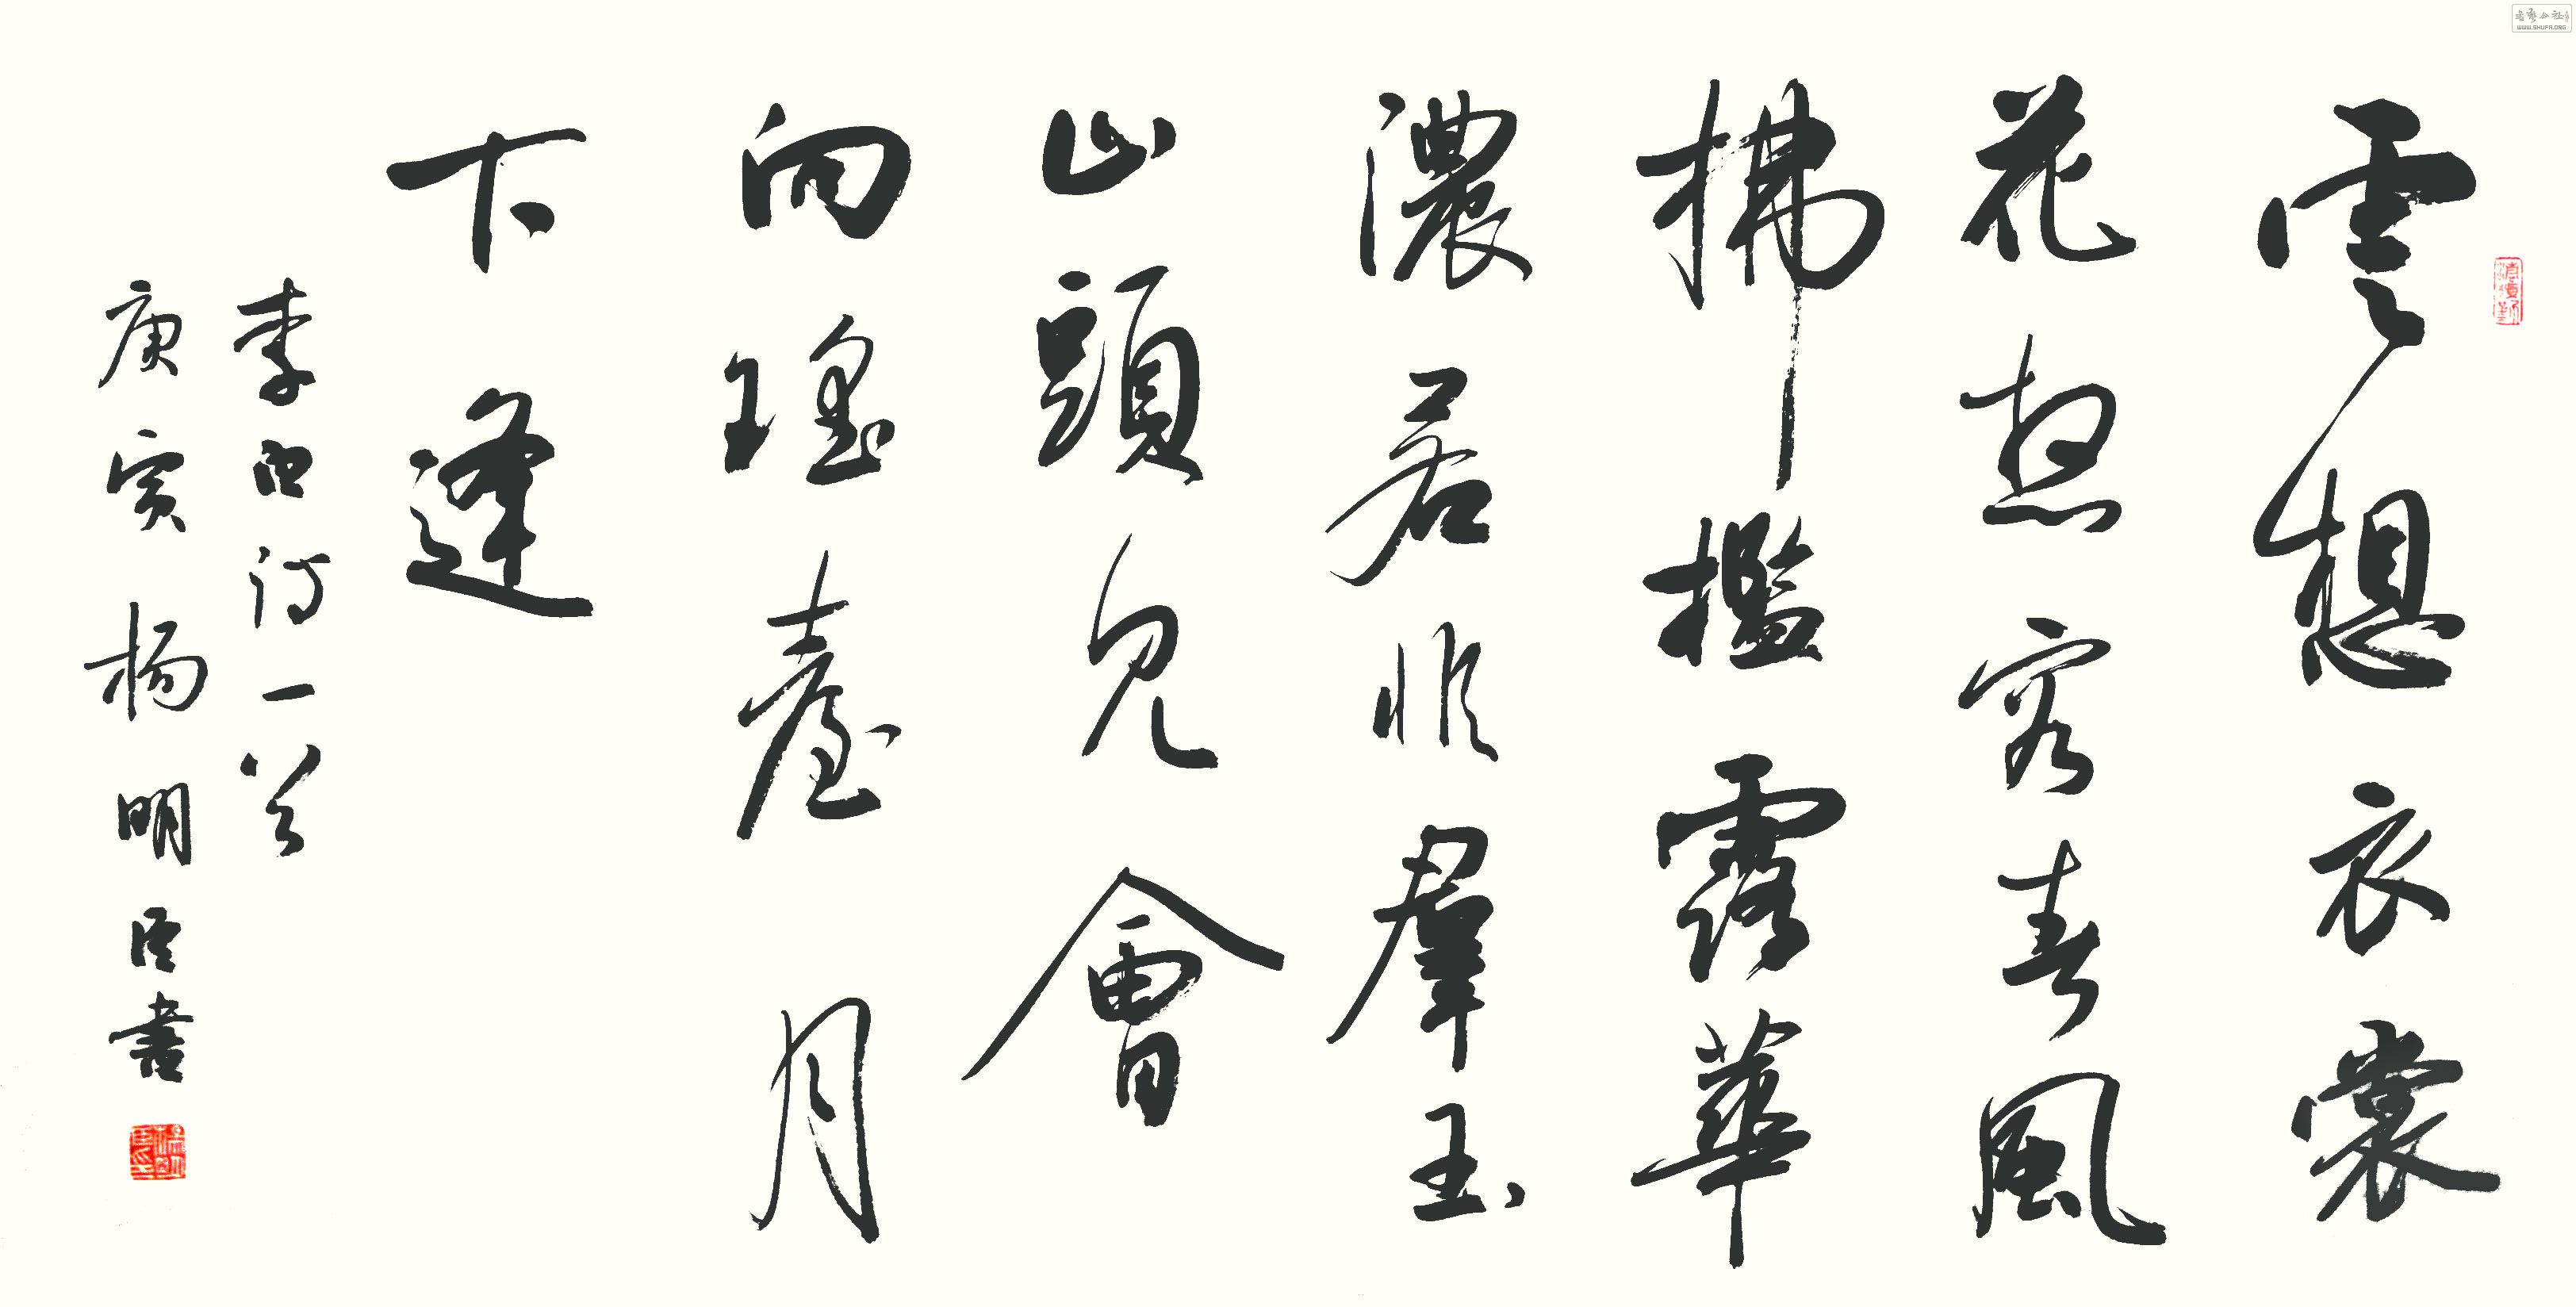 雲想衣裳
花想容春風
拂檻露華
濃若非羣玉
山頭見會
向瑤臺月
下逢
李白詩一首
庚寅楊明臣書
WWW.SHUFA.ORG